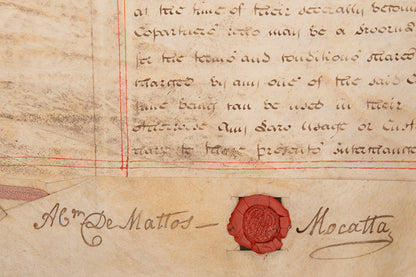 at the time of their severally becom
Copartners who may be a
for the terms and conditions shares
charged by any one of the said
same being can be used in their
otherwise Any Law Usage or Cust
thare to these presents
Abm De Mattos — Mocatta